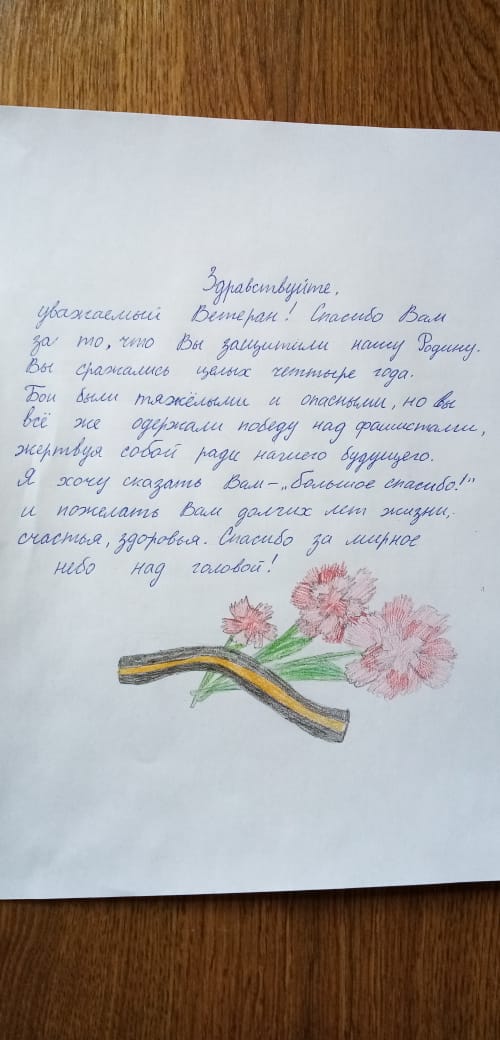 Здравствуйте,
уважаемый Ветеран! Спасибо Вам
за то, что Вы защитили нашу Родину.
Вы сражались целых четыре года.
Бои были тяжёлыми и опасными, но вы
всё же одержали победу над фашистами,
жертвуя собой ради нашего будущего.
Я хочу сказать Вам – „большое спасибо!"
и пожелать Вам долгих лет жизни,
счастья, здоровья. Спасибо за мирное
небо над головой!